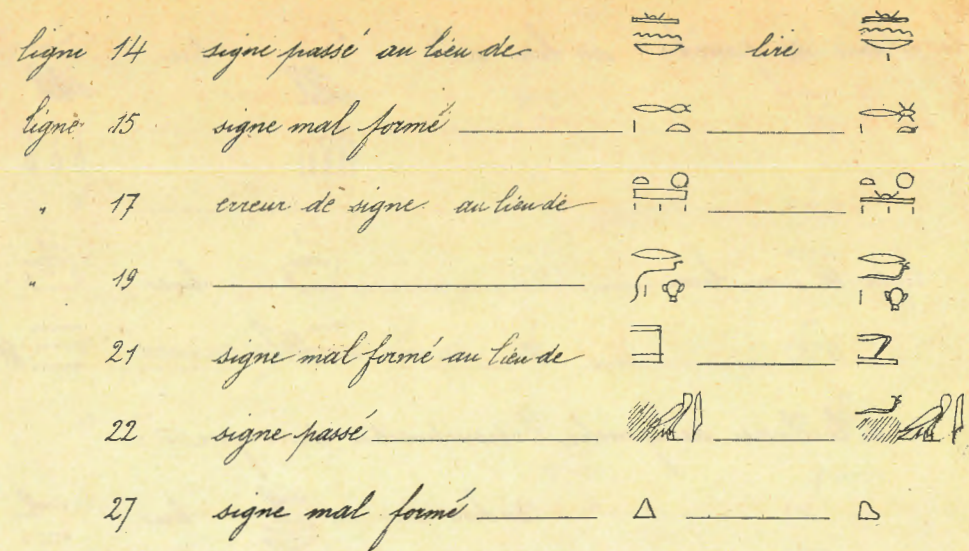 ligne 14 signe passé au lieu de lire
ligne 15 signe mal formé
" 17 erreur de signe au lieu de
" 19
21 signe mal formé au lieu de
22 signe passé
27 signe mal formé